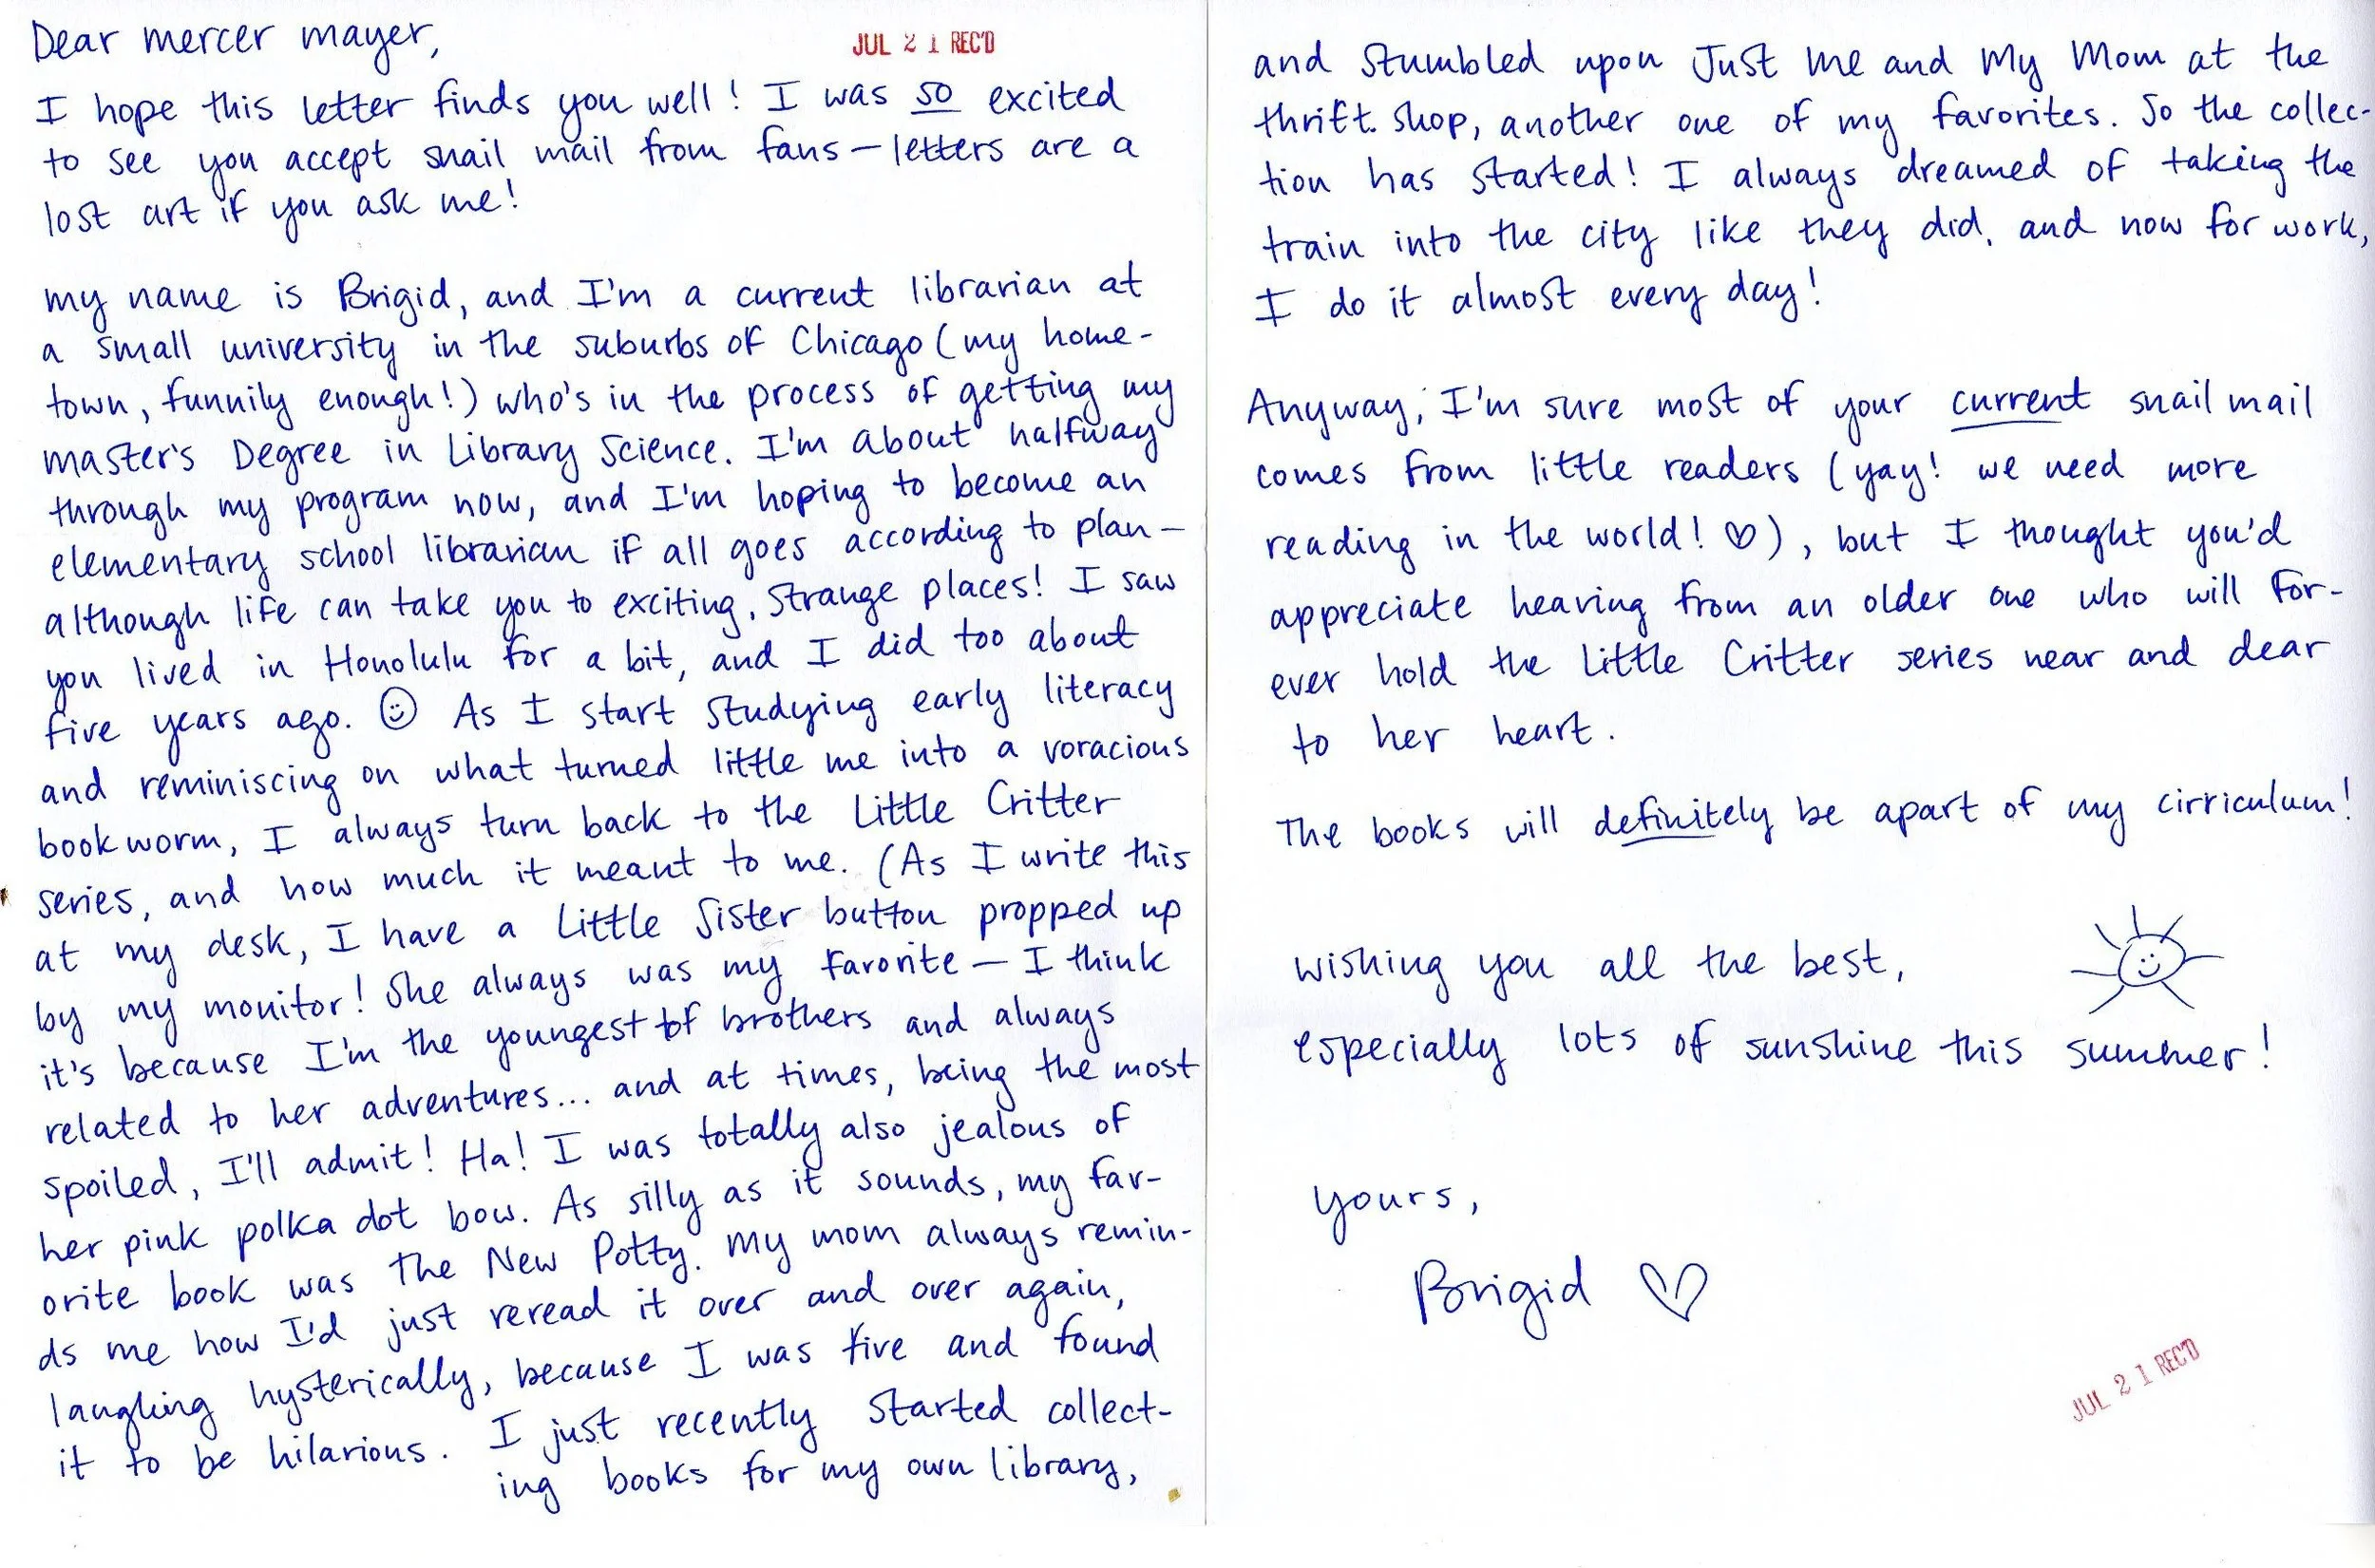 Dear mercer mayer,
JUL 21 REC'D
I hope this letter finds you well! I was so excited
to see you accept snail mail from fans — letters are a
lost art if you ask me!
my name is Brigid, and I'm a current librarian at
a small university in the suburbs of Chicago (my home-
town, funnily enough!) who's in the process of getting my
master's Degree in Library Science. I'm about halfway
through my program now, and I'm hoping to become an
elementary school librarian if all goes according to plan —
although life can take you to exciting, strange places! I saw
you lived in Honolulu for a bit, and I did too about
five years ago. ☺ As I start studying early literacy
and reminiscing on what turned little me into a voracious
bookworm, I always turn back to the Little Critter
series, and how much it meant to me. (As I write this
at my desk, I have a Little Sister button propped up
by my monitor! She always was my favorite — I think
it's because I'm the youngest of brothers and always
related to her adventures... and at times, being the most
spoiled, I'll admit! Ha! I was totally also jealous of
her pink polka dot bow. As silly as it sounds, my fav-
orite book was The New Potty. my mom always remin-
ds me how I'd just reread it over and over again,
laughing hysterically, because I was five and found
it to be hilarious. I just recently started collect-
ing books for my own library,
and stumbled upon Just Me and My Mom at the
thrift shop, another one of my favorites. So the collec-
tion has started! I always dreamed of taking the
train into the city like they did, and now for work,
I do it almost every day!
Anyway, I'm sure most of your current snail mail
comes from little readers (yay! we need more
reading in the world! ♡), but I thought you'd
appreciate hearing from an older one who will for-
ever hold the Little Critter series near and dear
to her heart.
The books will definitely be apart of my cirriculum!
wishing you all the best,
especially lots of sunshine this summer!
yours,
Brigid ♡
JUL 21 REC'D